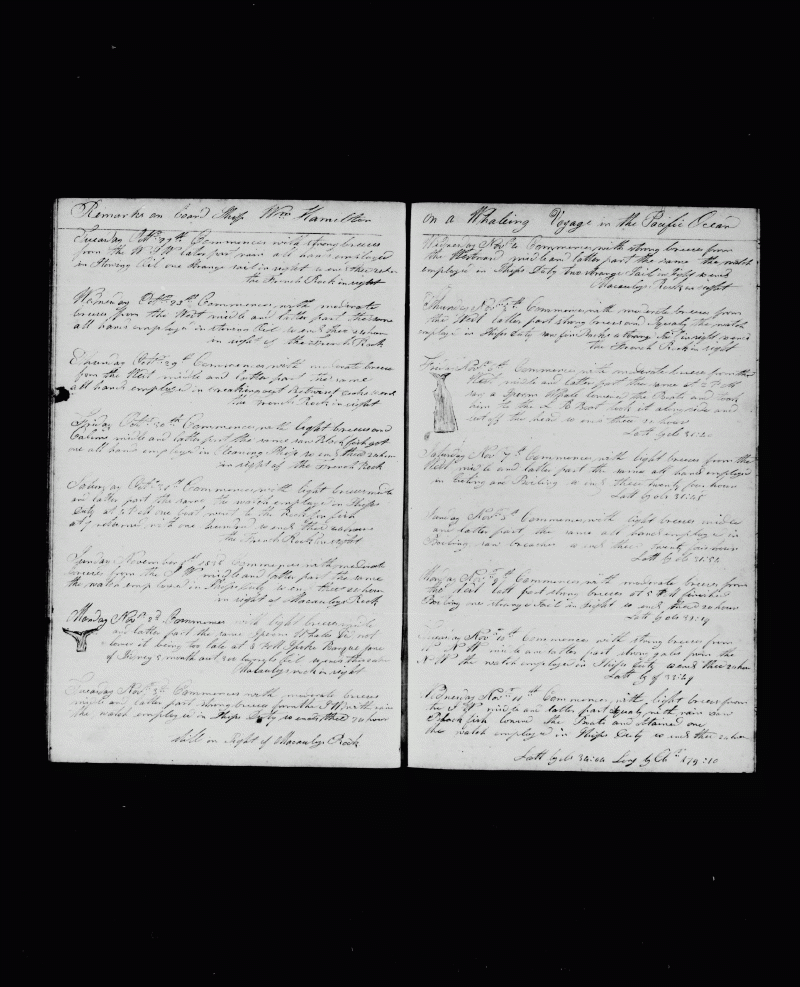 Remarks on board Ship Wm Hamilton
Tuesday Octbr 27th Commences with strong breeses
from the W S W later part same all hands employed
in Stowing Oil one strange sail in sight so ends these 24 hours
the French Rock in sight
Wednesday Octbr 28th Commences with moderate
breeses from the West middle and latter part the same
all hands employed in Stowing Oil so ends these 24 hours
in sight of the French Rock
Thursday Octbr 29th Commences with moderate breeses
from the West middle and latter part the same
all hands employed in so ends
the French Rock in sight
Friday Octbr 30th Commences with light breeses and
Calms middle and latter part the same saw Black fish got
one all hands employed in Cleaning Ship so ends these 24 hours
in sight of the French Rock
Saturday Octbr 31st Commences with light breeses middle
and latter part the same the watch employed in Ships
Duty at A M one boat went to the Rock for fish
and returned with one so ends these 24 hours
the French Rock in sight
Sunday November 1st 1835 Commences with moderate
breeses from the S W middle and latter part the same
the watch employed in Ships Duty so ends these 24 hours
in sight of Macauleys Rock
Monday Novbr 2d Commences with light breeses middle
and latter part the same Sperm Whales Did not
lower it being too late at 8 A M Spoke Barque Jane
of Sidney 5 months out 200 barrels Oil so ends these 24
Macauleys rock in sight
Tuesday Novbr 3d Commences with moderate breeses
middle and latter part strong breeses from the N W with rain
the watch employed in Ships Duty so ends these 24 hours
still in Sight of Macauleys Rock
On a Whaleing Voyage in the Pacific Ocean
Wednesday Novbr 4 Commences with strong breeses from
the Westward middle and latter part the same the watch
employed in Ships Duty two strange Sail in sight so ends
Macauleys Rock in sight
Thursday Novbr 5th Commences with moderate breeses from
the West latter part strong breeses and Squaly the watch
employed in Ships Duty saw fin Backs a strange Sail in sight so ends
the French Rock in sight
Friday Novbr 6th Commences with moderate breeses from the
West middle and latter part the same at 2 P M
saw a Sperm Whale lowered the Boats and took
him to the L B Boat took it alongside and
cut off the head so ends 24 hours
Latt by ob 31:20
Saturday Novbr 7th Commences with light breeses from the
West middle and latter part the same all hands employed
in Cuting and Boiling so ends these twenty four hours
Latt by obs 31:45
Sunday Novbr 8th Commences with light breeses middle
and latter part the same all hands employed in
Boiling saw so ends these twenty four hours
Latt by obs 31:52
Monday Novbr 9th Commences with moderate breeses from
the West latt part strong breeses at 5 A M finished
Boiling one strange Sail in sight so ends these 24 hours
Latt by obs
Tuesday Novbr 10th Commences with strong breeses from
W N W middle and latter part strong gales from the
N W the watch employed in Ships Duty so ends these 24 hours
Latt by ob 33:29
Wednesday Novbr 11th Commences with light breeses from
the S W middle and latter part Squaly with rain saw
Black fish lowered the Boats and obtained one
the watch employed in Ships Duty so ends these 24 hours
Latt by obs 34:44 Long by Ch 179:10